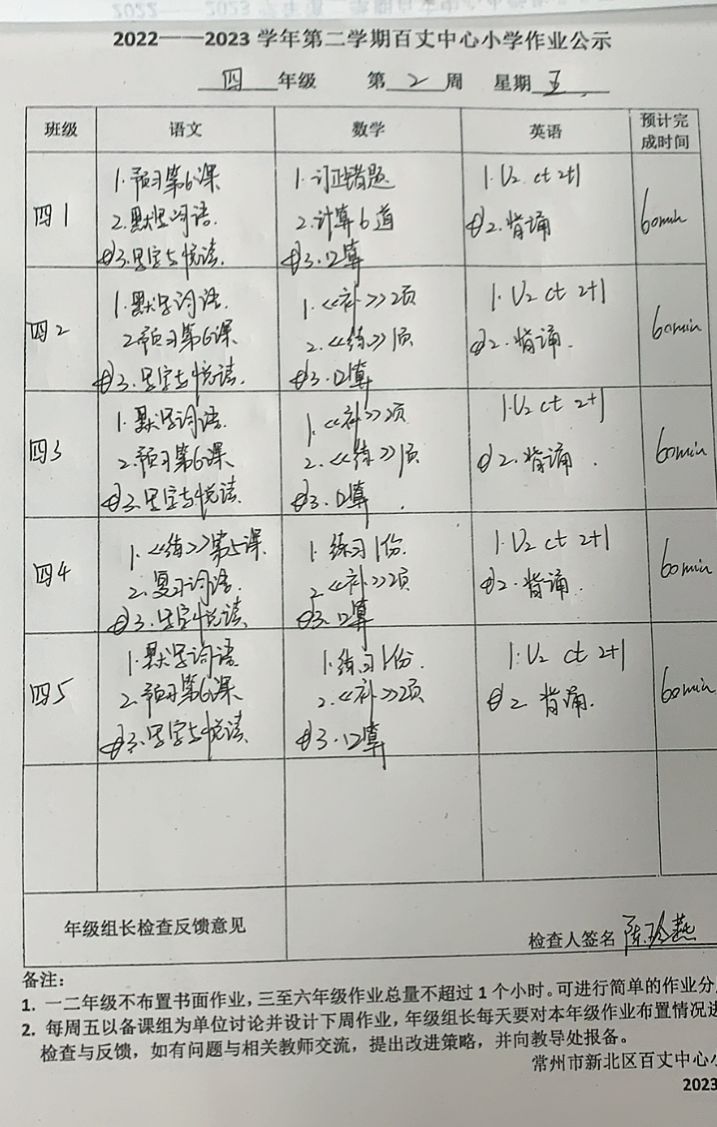 2022——2023 学年第二学期百丈中心小学作业公示
四 年级 第 2 周 星期 五
班级 语文 数学 英语 预计完成时间
四1
1. 预习第6课
2. 默写词语.
3. 写字与悦读.
1. 订正错题
2. 计算6道
3. 口算
1. U2 ct 2+1
2. 背诵
60min
四2
1. 默写词语.
2. 预习第6课.
3. 写字与悦读.
1. 《补》2页
2. 《练》1页
3. 口算
1. U2 ct 2+1
2. 背诵.
60min
四3
1. 默写词语.
2. 预习第6课
3. 写字与悦读.
1. 《补》2页
2. 《练》1页
3. 口算.
1. U2 ct 2+1
2. 背诵.
60min
四4
1. 《练》第5课.
2. 复习词语.
3. 写字悦读.
1. 练习1份.
2. 《补》2页
3. 口算
1. U2 ct 2+1
2. 背诵.
60min
四5
1. 默写词语
2. 预习第6课
3. 写字与悦读.
1. 练习1份.
2. 《补》2页
3. 口算
1. U2 ct 2+1
2 背诵.
60min
年级组长检查反馈意见
检查人签名 陈玲燕
备注：
1. 一二年级不布置书面作业，三至六年级作业总量不超过 1 个小时。可进行简单的作业分
2. 每周五以备课组为单位讨论并设计下周作业，年级组长每天要对本年级作业布置情况进
检查与反馈，如有问题与相关教师交流，提出改进策略，并向教导处报备。
常州市新北区百丈中心小
2023